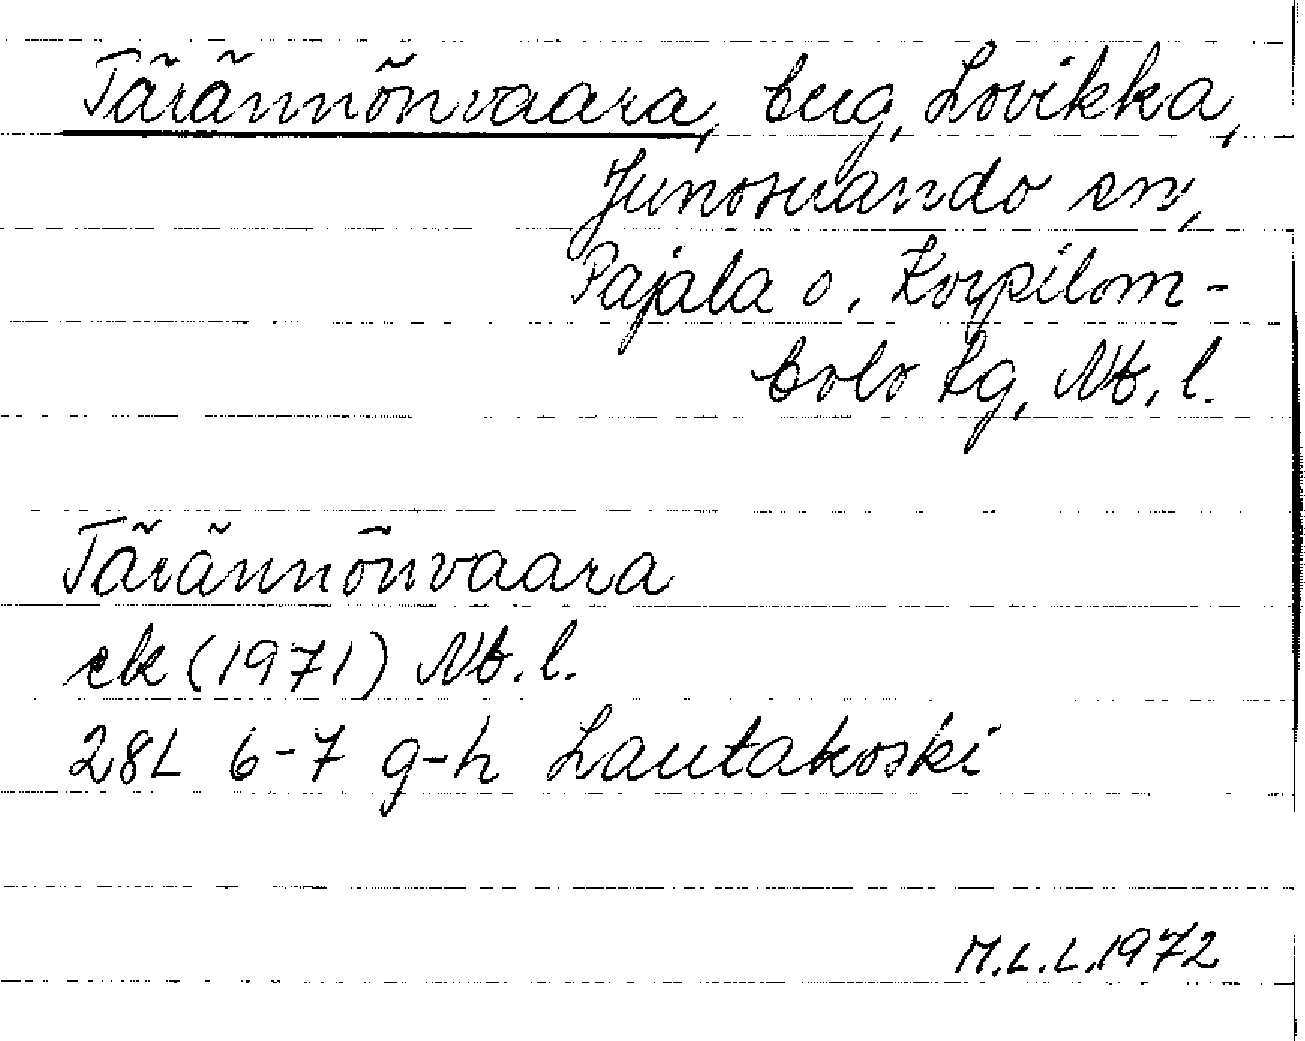 Tärännönvaara, berg, Lovikka,
Junosuando sn,
Pajala o. Korpilom-
bolo tg, Nb. l.
Tärännönvaara
ek (1971) Nb. l.
28L 6-7 g-h Lautakoski
M.L.L.1972